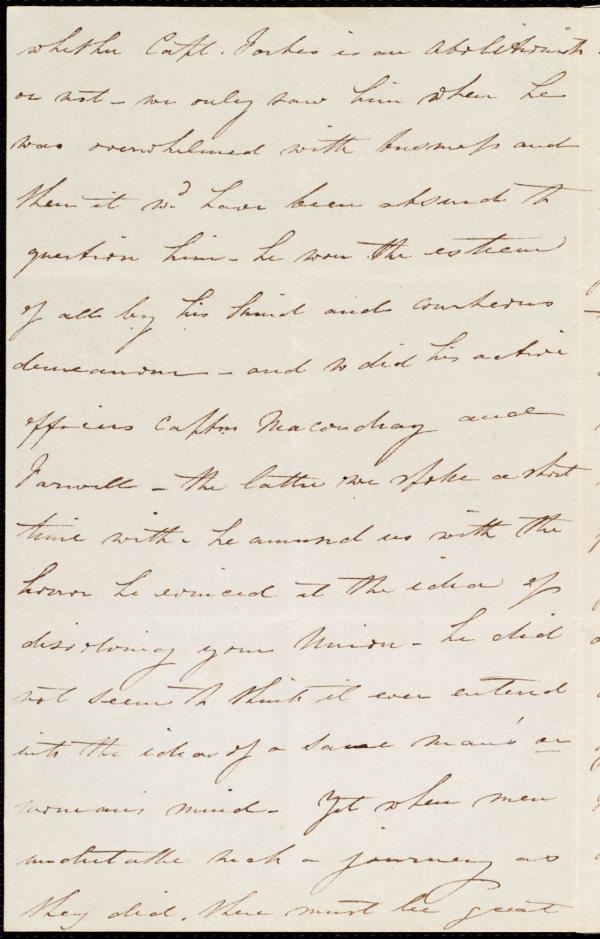 whether Capt. Forbes is an Abolitionist
or not - we only saw him when he
was overwhelmed with business and
then it wd have been absurd to
question him - he won the esteem
of all by his kind and courteous
demeanour - and so did his active
officers Captns Macondray and
Farwell - the latter we spoke a short
time with - he amused us with the
horror he evinced at the idea of
dissolving your Union - he did
not seem to think it ever entered
into the ideas of a sane man's or
woman's mind - Yet when men
undertake such a journey as
they did, there must be great